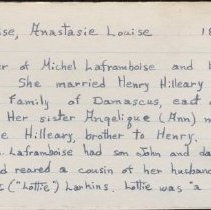 ise, Anastasie Louise 18
er of Michel Laframboise and
She married Henry Hilleary
Family of Damascus, east
Her sister Angelique (Ann) m
e Hilleary, brother to Henry.
Laframboise had son John and da
d reared a cousin of her husband
("Lottie") Larkins. Lottie was "a